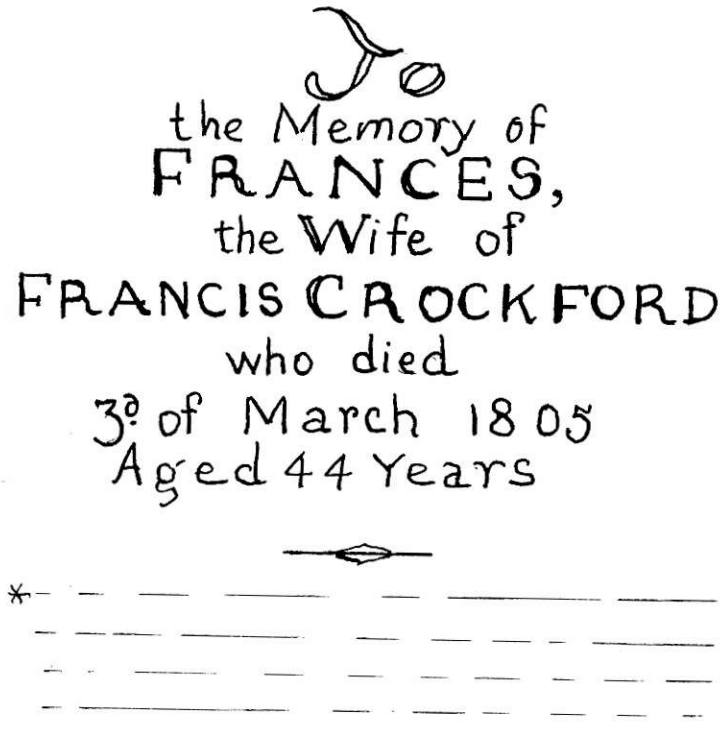 To
the Memory of
FRANCES,
the Wife of
FRANCIS CROCKFORD
who died
3d of March 1805
Aged 44 Years
*